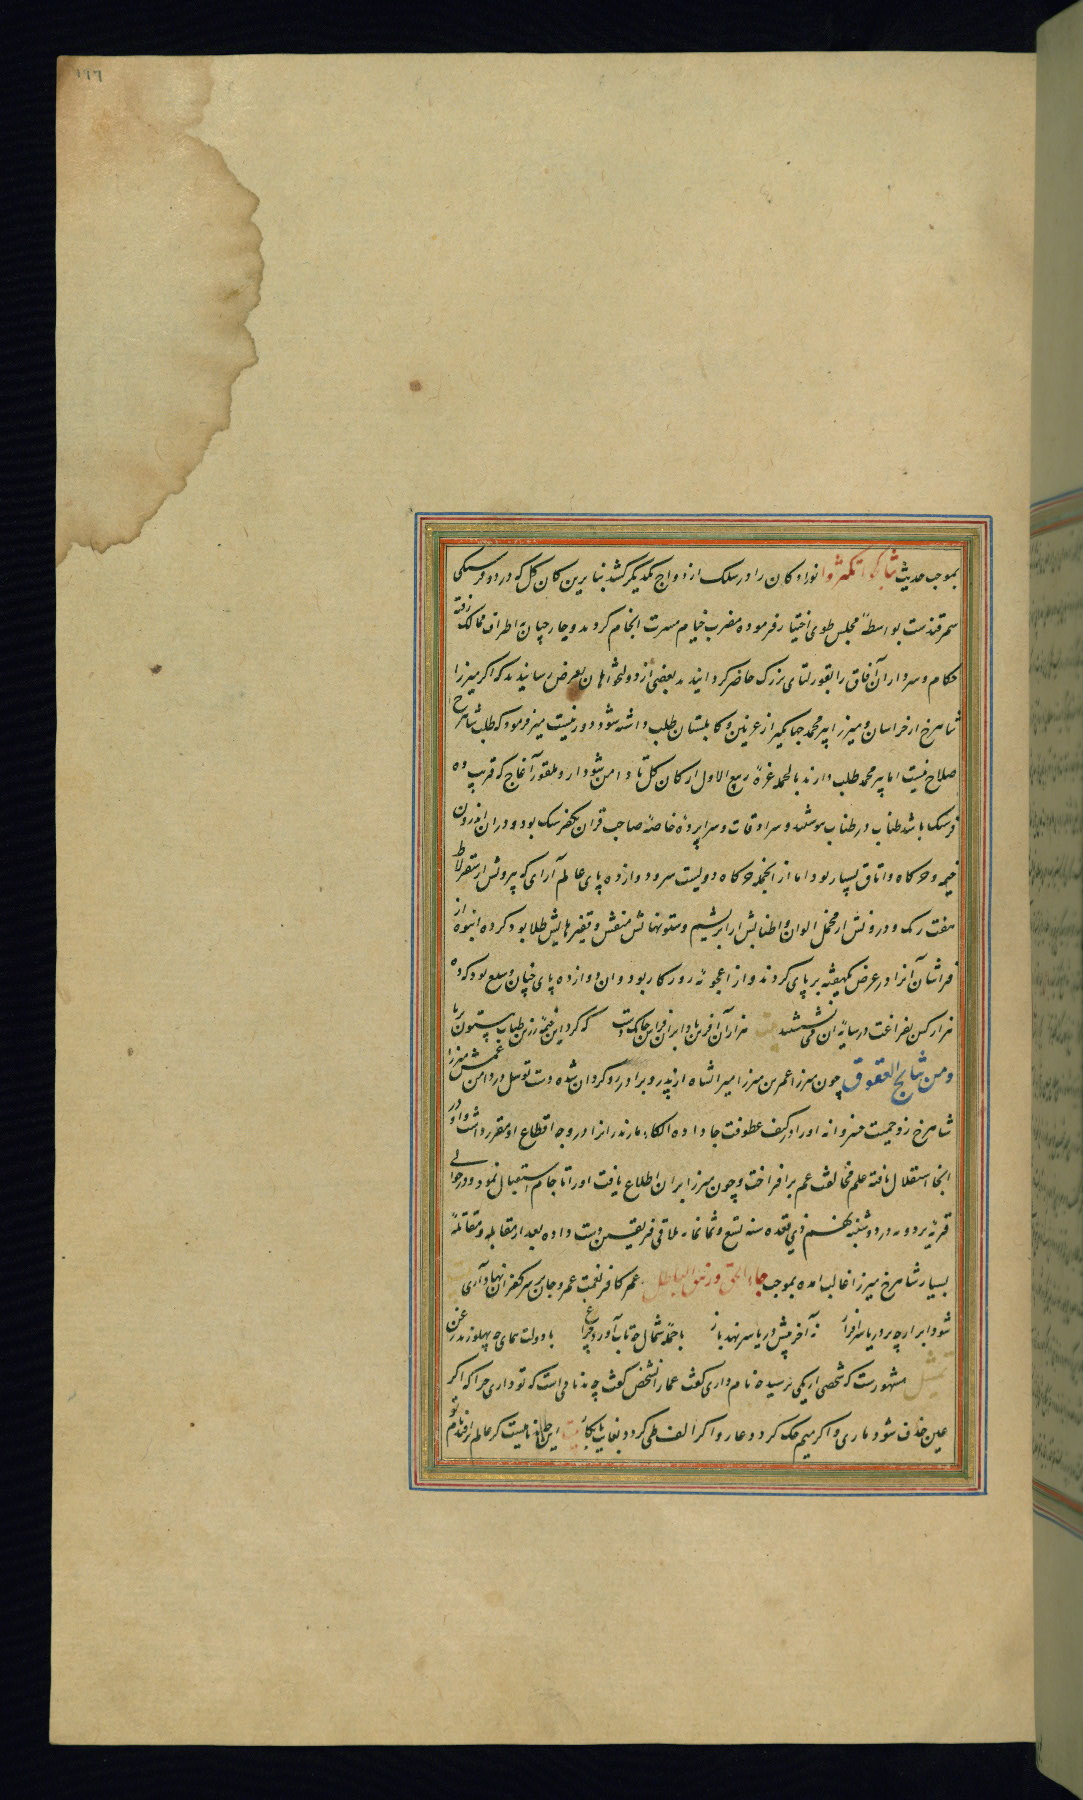 ١٩٦
بموجب حدیث تناکحوا تکثروا نوادگان را در سلک ازدواج یکدیگر کشد بنا برین کان کل که در دو فرسنگی
سمرقندست بواسطهٔ مجلس طوی اختیار فرموده مضرب خیام مسرت انجام کردند و جارچیان اطراف ممالک رفته
حکام و سرداران آفاق را بقورلتای بزرک حاضر کردانیدند بعضی از دولتخواهان بعرض رسانیدند که اکر میرزا
شاهرخ از خراسان و میرزا پیر محمد جهانگیر از غزنین و کابلستان طلب داشته شود دور نیست میرزا فرمود که طلب شاهرخ
صلاح نیست اما پیر محمد طلب دارند بالجمله غرهٔ ربیع الاول از کان کل تا دامن شودار و بلقور آغاج که قریب ده
فرسنک باشد طناب در طناب و سرادقات و سراپردهٔ خاصهٔ صاحب قران یکفرسنک بود و در ان اندرون
خیمه و خرکاه و اتاق بسیار بود اما از انجمله خرکاه دویست سر و دوازده پای عالم آرای که بیرونش از سقرلاط
هفت رنک و درونش از مخمل الوان و اطنابش از ابریشیم و ستونهاش منقش و طلا بود کرده انبوه از
فراشان آنرا در عرض یکهفته بر پای کردند و از اعجوبهٔ روزکار بود و ان دوازده پای چنان وسیع بود که ده
هزار کس بفراغت در سایهٔ ان می نشستند بیت هزاران آفرین بادا بران که کرد این خیمهٔ زرین طناب بیستون برپا
و من نتایج العقوق چون میرزا عمر بن میرزا امیرانشاه از پدر و برادر رو کردان شده دست توسل در دامن عمش میرزا
شاهرخ زد حمیت خسروانه اورا در کنف عطوفت جا داده الکاء مازندرانرا در وجه اقطاع او مقرر داشت و او در
انجا استقلال یافته علم مخالفت عم برافراخت و چون میرزا بران اطلاع یافت اورا تا جام استقبال نمود و در حوالی
قریهٔ بردویه در دوشنبه نهم ذی قعده سنه تسع و ثمانمایه تلاقی فریقین دست داده بعد از مقابله و مقاتلهٔ
بسیار شاهرخ میرزا غالب امده بموجب جاء الحق و زهق الباطل عمر کافر نعمت عمر و جان بر سر کفران نهاد آری
شود ابر ارچه بر دریا سرافراز نه آخر پیش دریا سر نهد باز با حملهٔ شمال چه تاب آورد چراغ با دولت همای چه پهلو زند زغن
تمثیل مشهورست که شخصی از یکی پرسید چه نام داری کفت عمار انشخص کفت چه بد نامی است که تو داری چرا که اکر
عین حذف شود ماری و اکر میم حک کردد عار و اکر الف طی کردد بیت این نامیست کر عالم برافتد نام تو